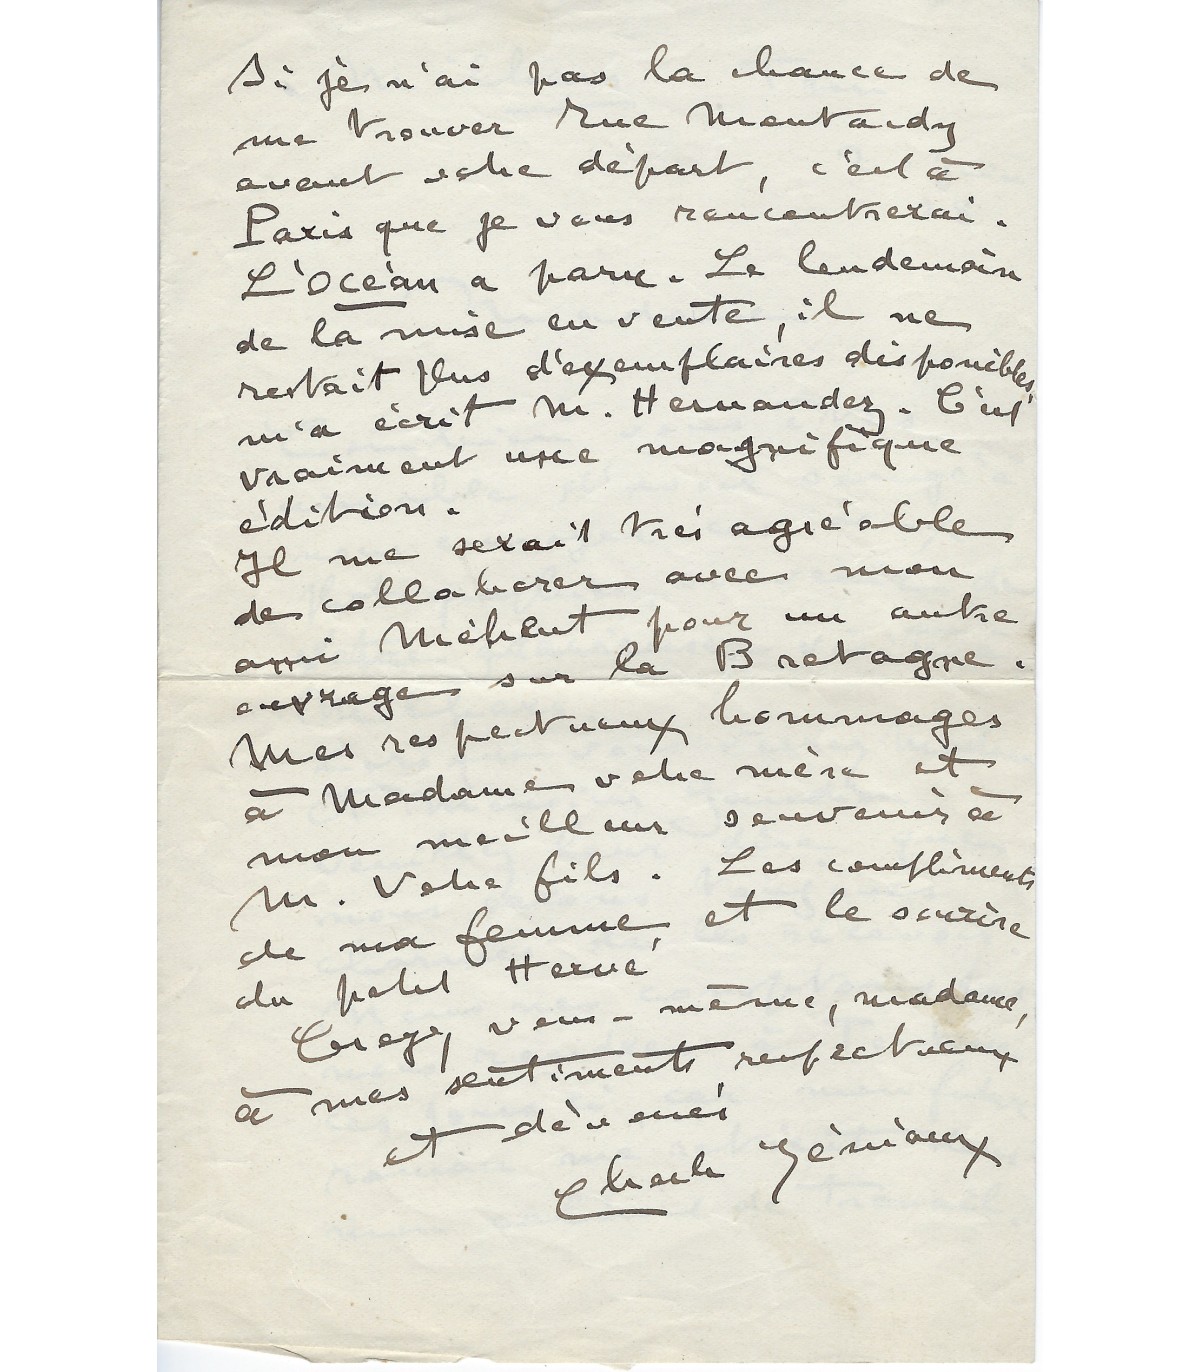 Si je n'ai pas la chance de
me trouver rue Montardy
avant votre départ, c'est à
Paris que je vous rencontrerai.
L'Océan a paru. Le lendemain
de la mise en vente, il ne
restait plus d'exemplaires disponibles,
m'a écrit M. Hernandez. C'est
vraiment une magnifique
édition.
Il me serait très agréable
de collaborer avec mon
ami Méheut pour un autre
ouvrage sur la Bretagne.
Mes respectueux hommages
à Madame votre mère et
mon meilleur souvenir à
M. Votre fils. Les compliments
de ma femme, et le sourire
du petit Hervé
Croyez, vous-même, madame,
à mes sentiments respectueux
et dévoués
Charles Géniaux